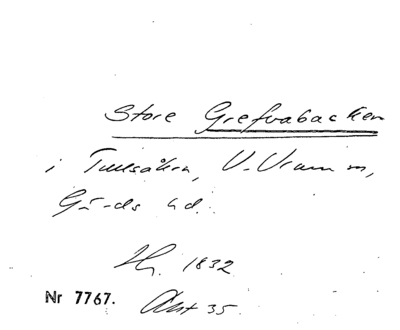 Store Grefvabacken
i Tullsåkra, V. Vram sn,
Gärds hd.
1832
Nr 7767. Akt 35.